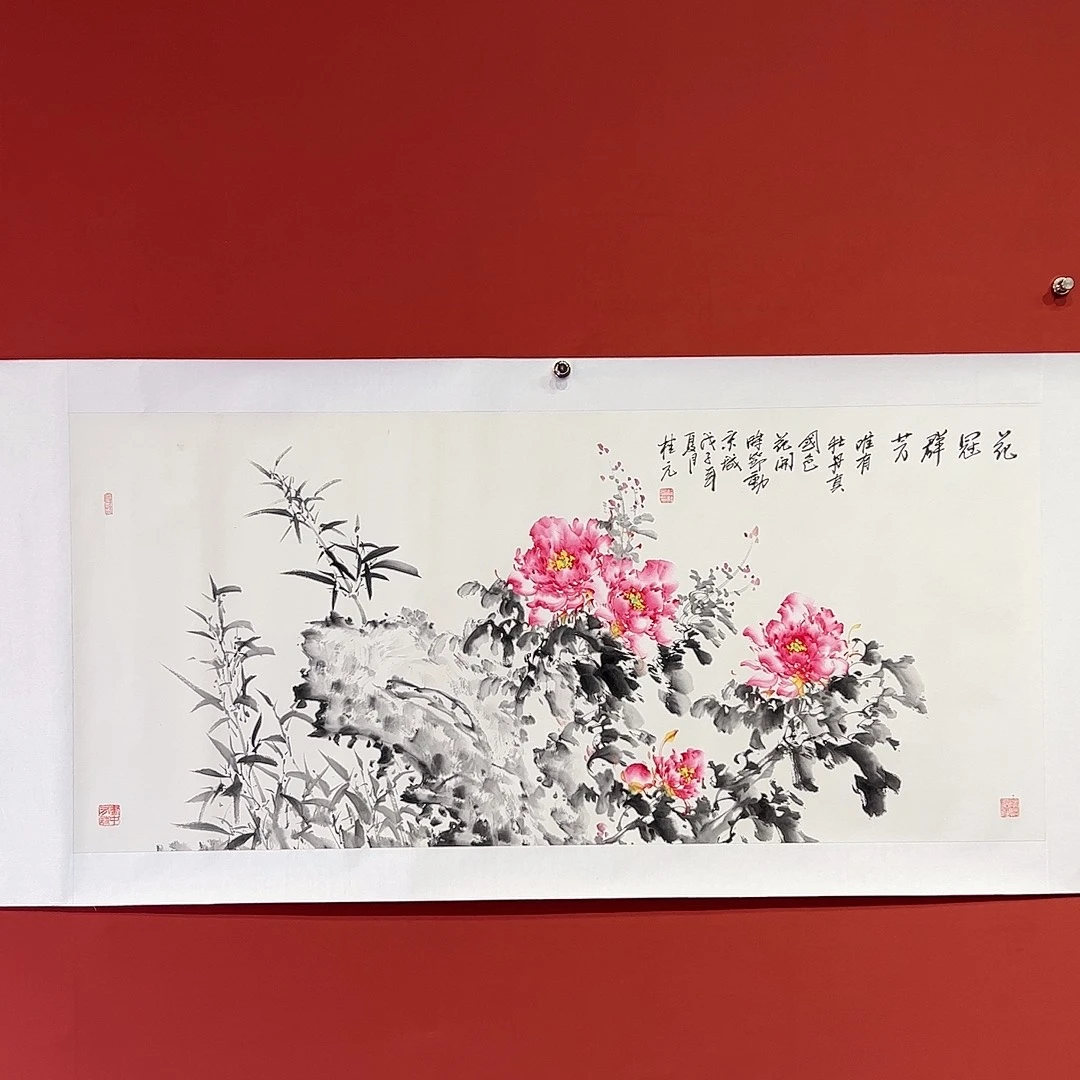 花
冠
群
芳
唯有
牡丹真
國色
花開
時節動
京城
戊子年
夏月
桂元